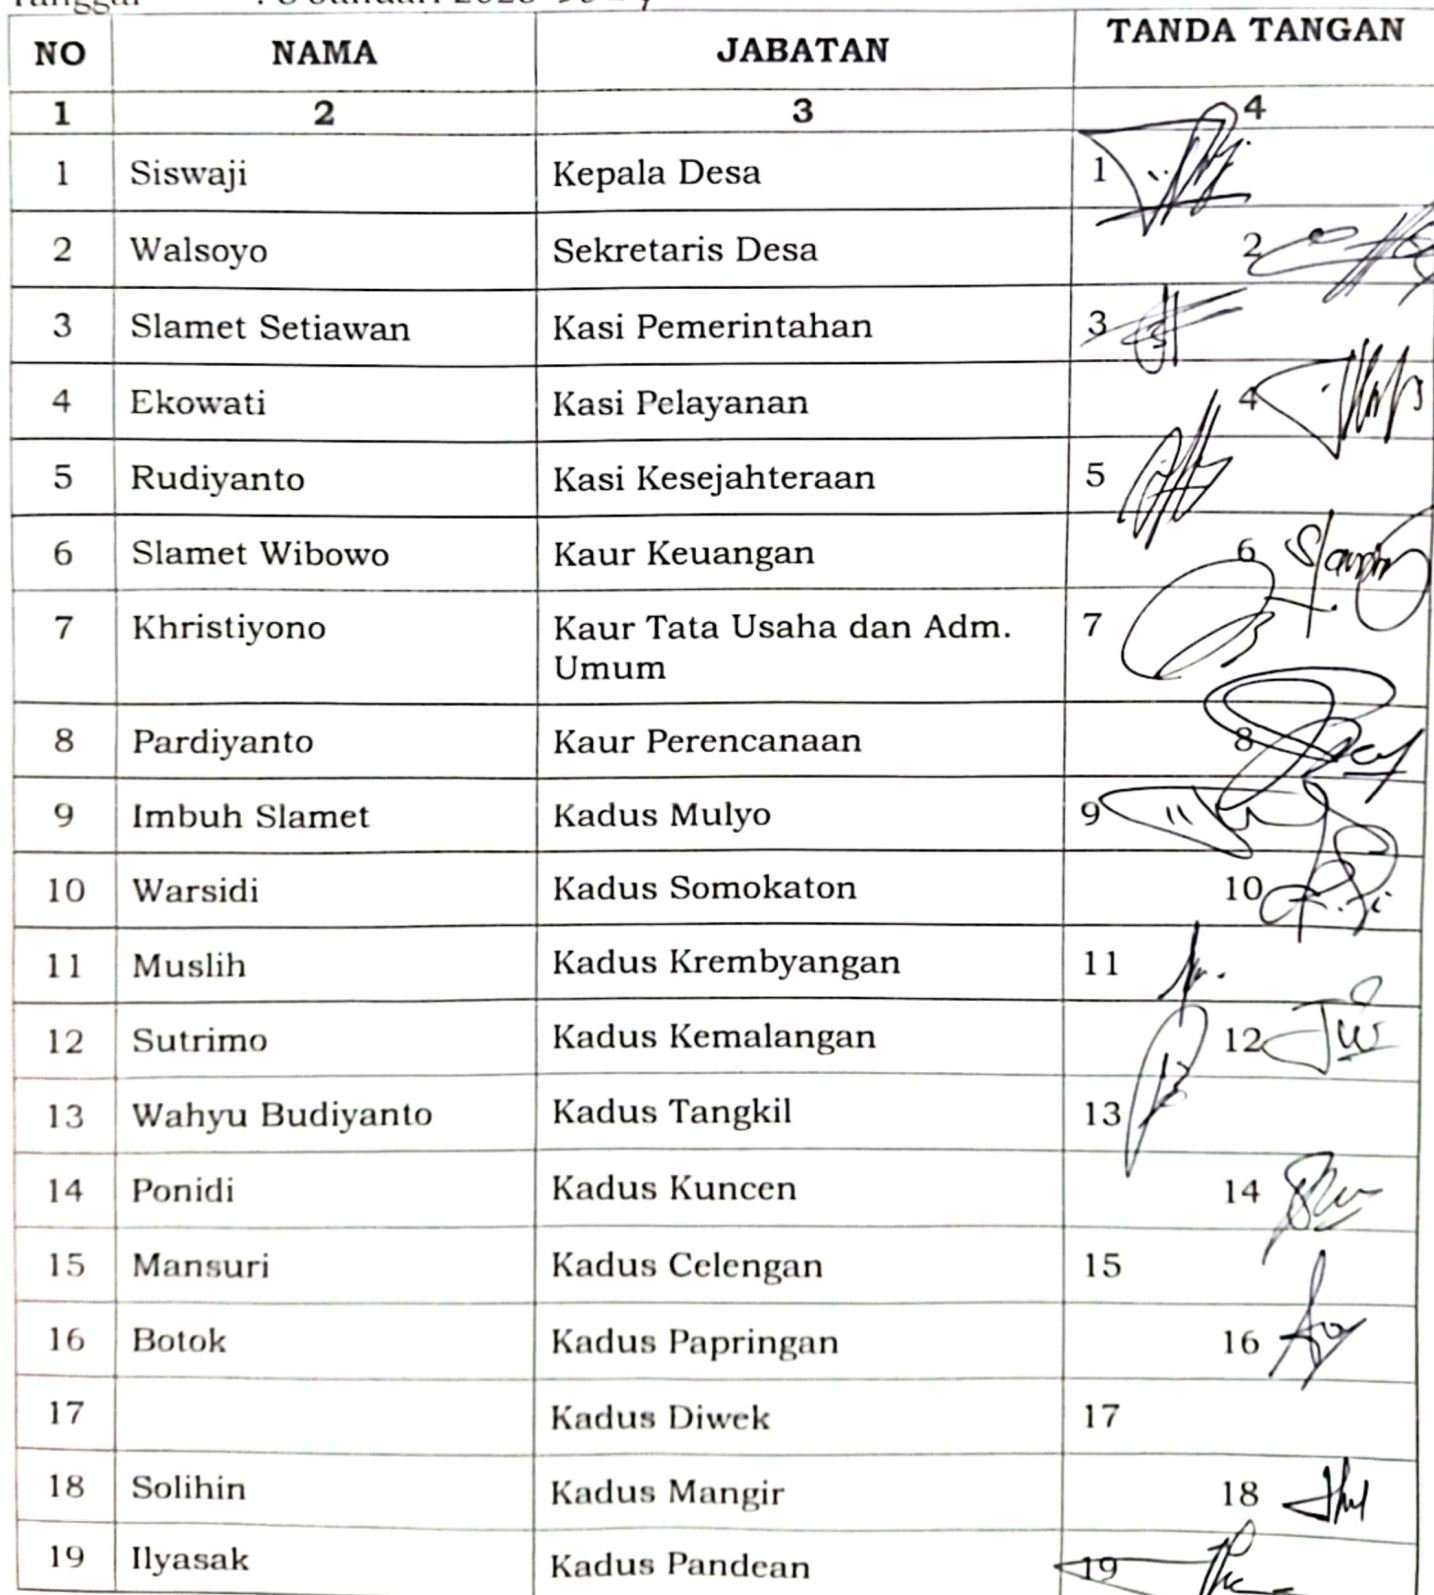 NO NAMA JABATAN TANDA TANGAN
1 2 3 4
1 Siswaji Kepala Desa 1
2 Walsoyo Sekretaris Desa 2
3 Slamet Setiawan Kasi Pemerintahan 3
4 Ekowati Kasi Pelayanan 4
5 Rudiyanto Kasi Kesejahteraan 5
6 Slamet Wibowo Kaur Keuangan 6
7 Khristiyono Kaur Tata Usaha dan Adm. 7
Umum
8 Pardiyanto Kaur Perencanaan 8
9 Imbuh Slamet Kadus Mulyo 9
10 Warsidi Kadus Somokaton 10
11 Muslih Kadus Krembyangan 11
12 Sutrimo Kadus Kemalangan 12
13 Wahyu Budiyanto Kadus Tangkil 13
14 Ponidi Kadus Kuncen 14
15 Mansuri Kadus Celengan 15
16 Botok Kadus Papringan 16
17 Kadus Diwek 17
18 Solihin Kadus Mangir 18
19 Ilyasak Kadus Pandean 19